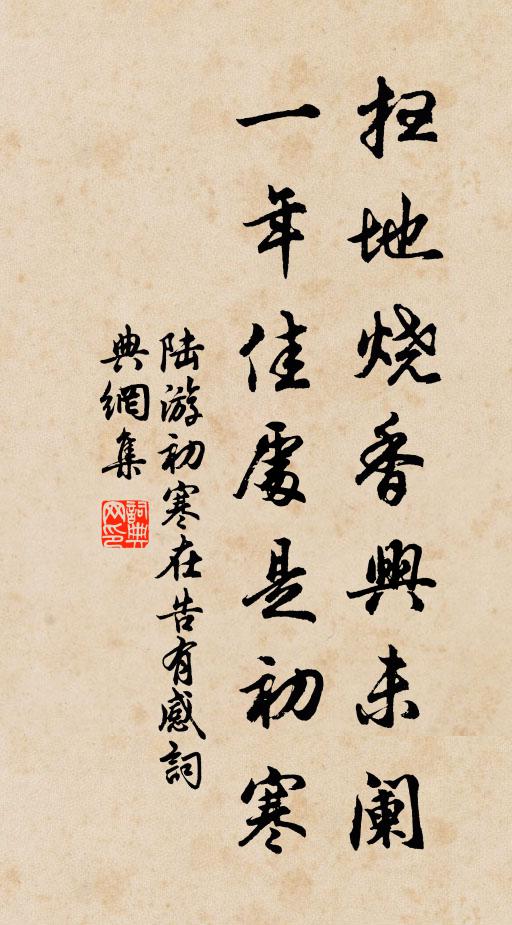 扫地烧香興未阑
一年佳處是初寒
陆游初寒在告有感詞
典網集
詞典网印